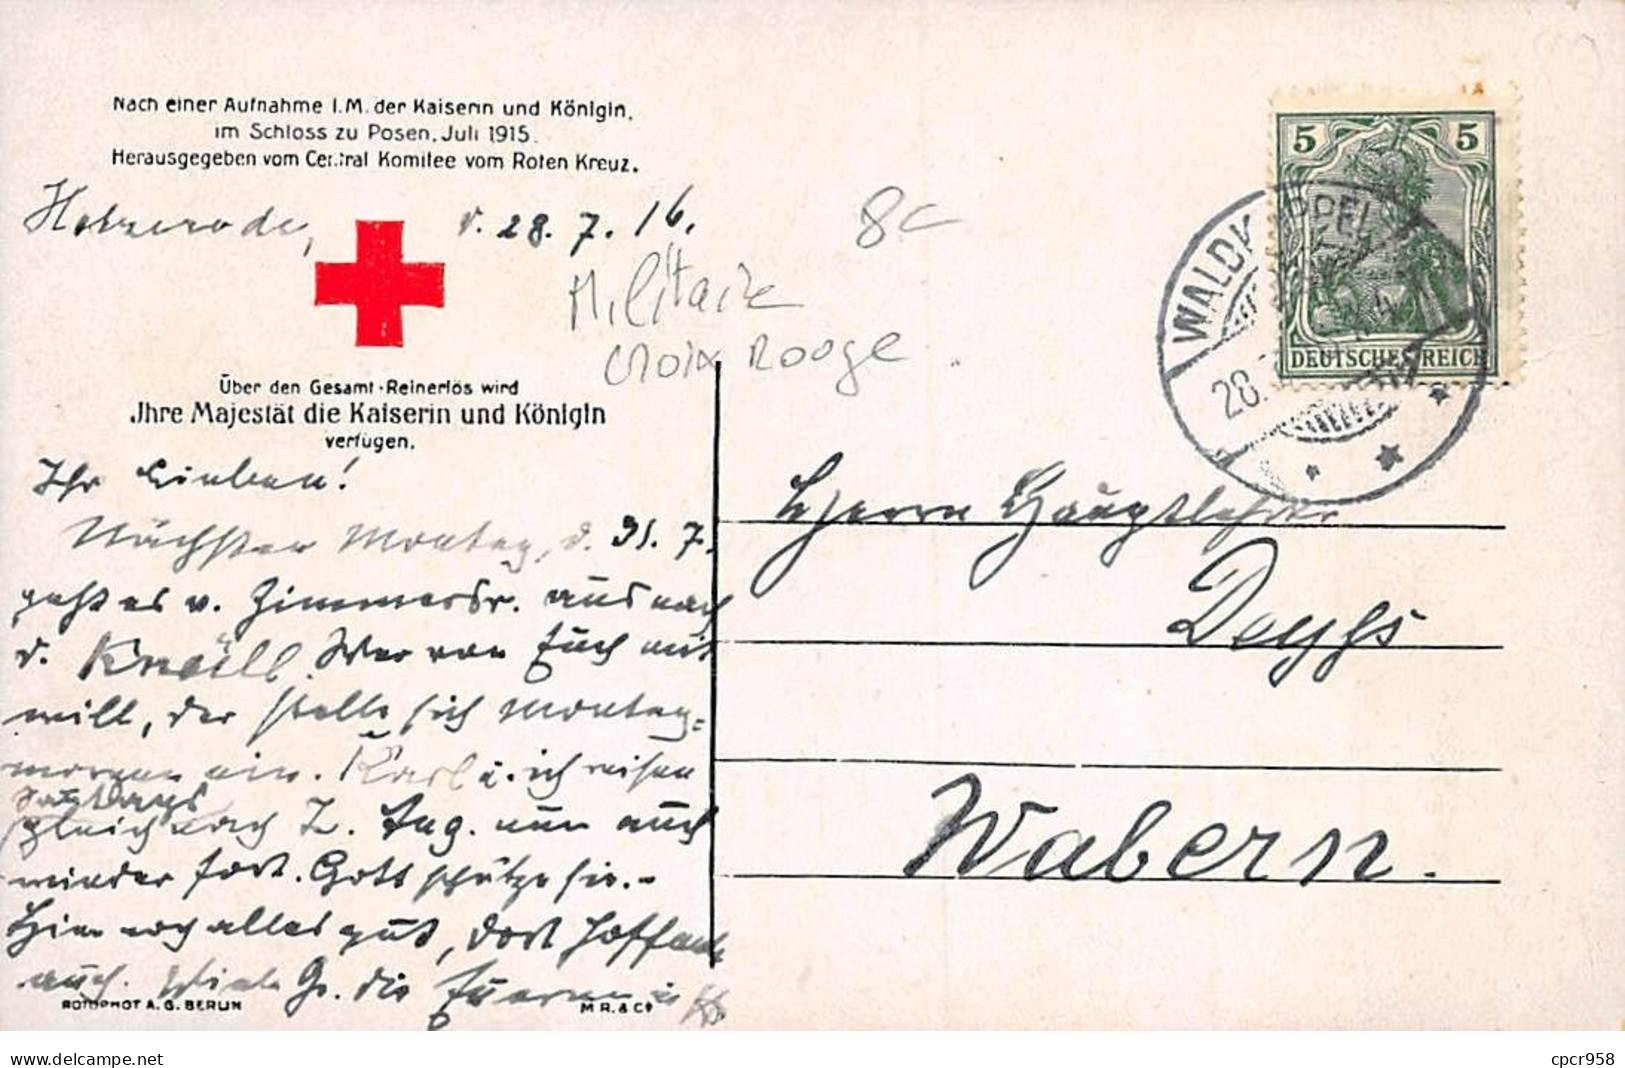 Nach einer Aufnahme I.M. der Kaiserin und Königin,
im Schloss zu Posen, Juli 1915.
Herausgegeben vom Central Komitee vom Roten Kreuz.
d. 28. 7. 16.
8€
Militaire
Croix Rouge
5 5
DEUTSCHES REICH
WALDK PPEL
28.
Über den Gesamt-Reinerlös wird
Jhre Majestät die Kaiserin und Königin
verfügen.
Ihr Lieben!
Nächsten Montag, d. 31. 7.
geht es v. Zimmersr. aus nach
d. Knüll. Wer von Euch mit
will, der stelle sich Montag-
morgen ein. Karl u. ich reisen
gleich nach 2. Aug. nun auch
wieder fort. Gott schütze sie.-
Hier noch alles gut, dort hoffentl.
auch. Viele Gr. die Eueren
Herrn Hauptlehrer
Deyhs
Wabern.
ROTOPHOT A. G. BERLIN
M R. & Co
delcampe.net
cpcr958